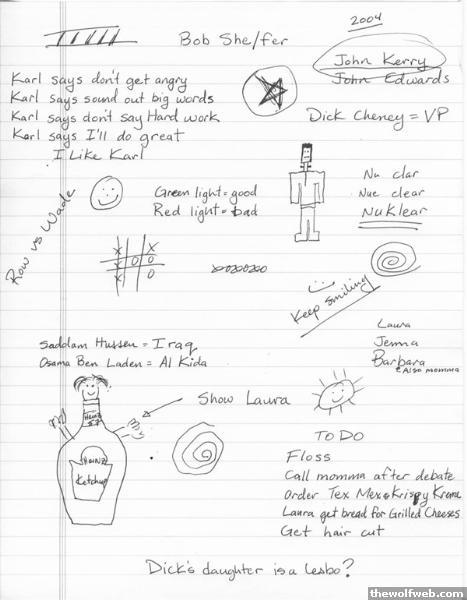 2004
Bob She/fer
John Kerry
John Edwards
Karl says don't get angry
Karl says sound out big words
Karl says don't say Hard work
Karl says I'll do great
I Like Karl
Dick Cheney = VP
Row vs Wade
Green light = good
Red light = bad
Nu clar
Nue clear
NuKlear
X X
X O O
X O
Keep smiling
Saddam Hussen = Iraq
Osama Ben Laden = Al Kida
Laura
Jenna
Barbara
Also momma
Show Laura
Heinz
57
HEINZ
Ketchup
TO DO
Floss
Call momma after debate
order Tex Mex & Krispy Kreme
Laura get bread for Grilled Cheeses
Get hair cut
Dick's daughter is a lesbo?
thewolfweb.com